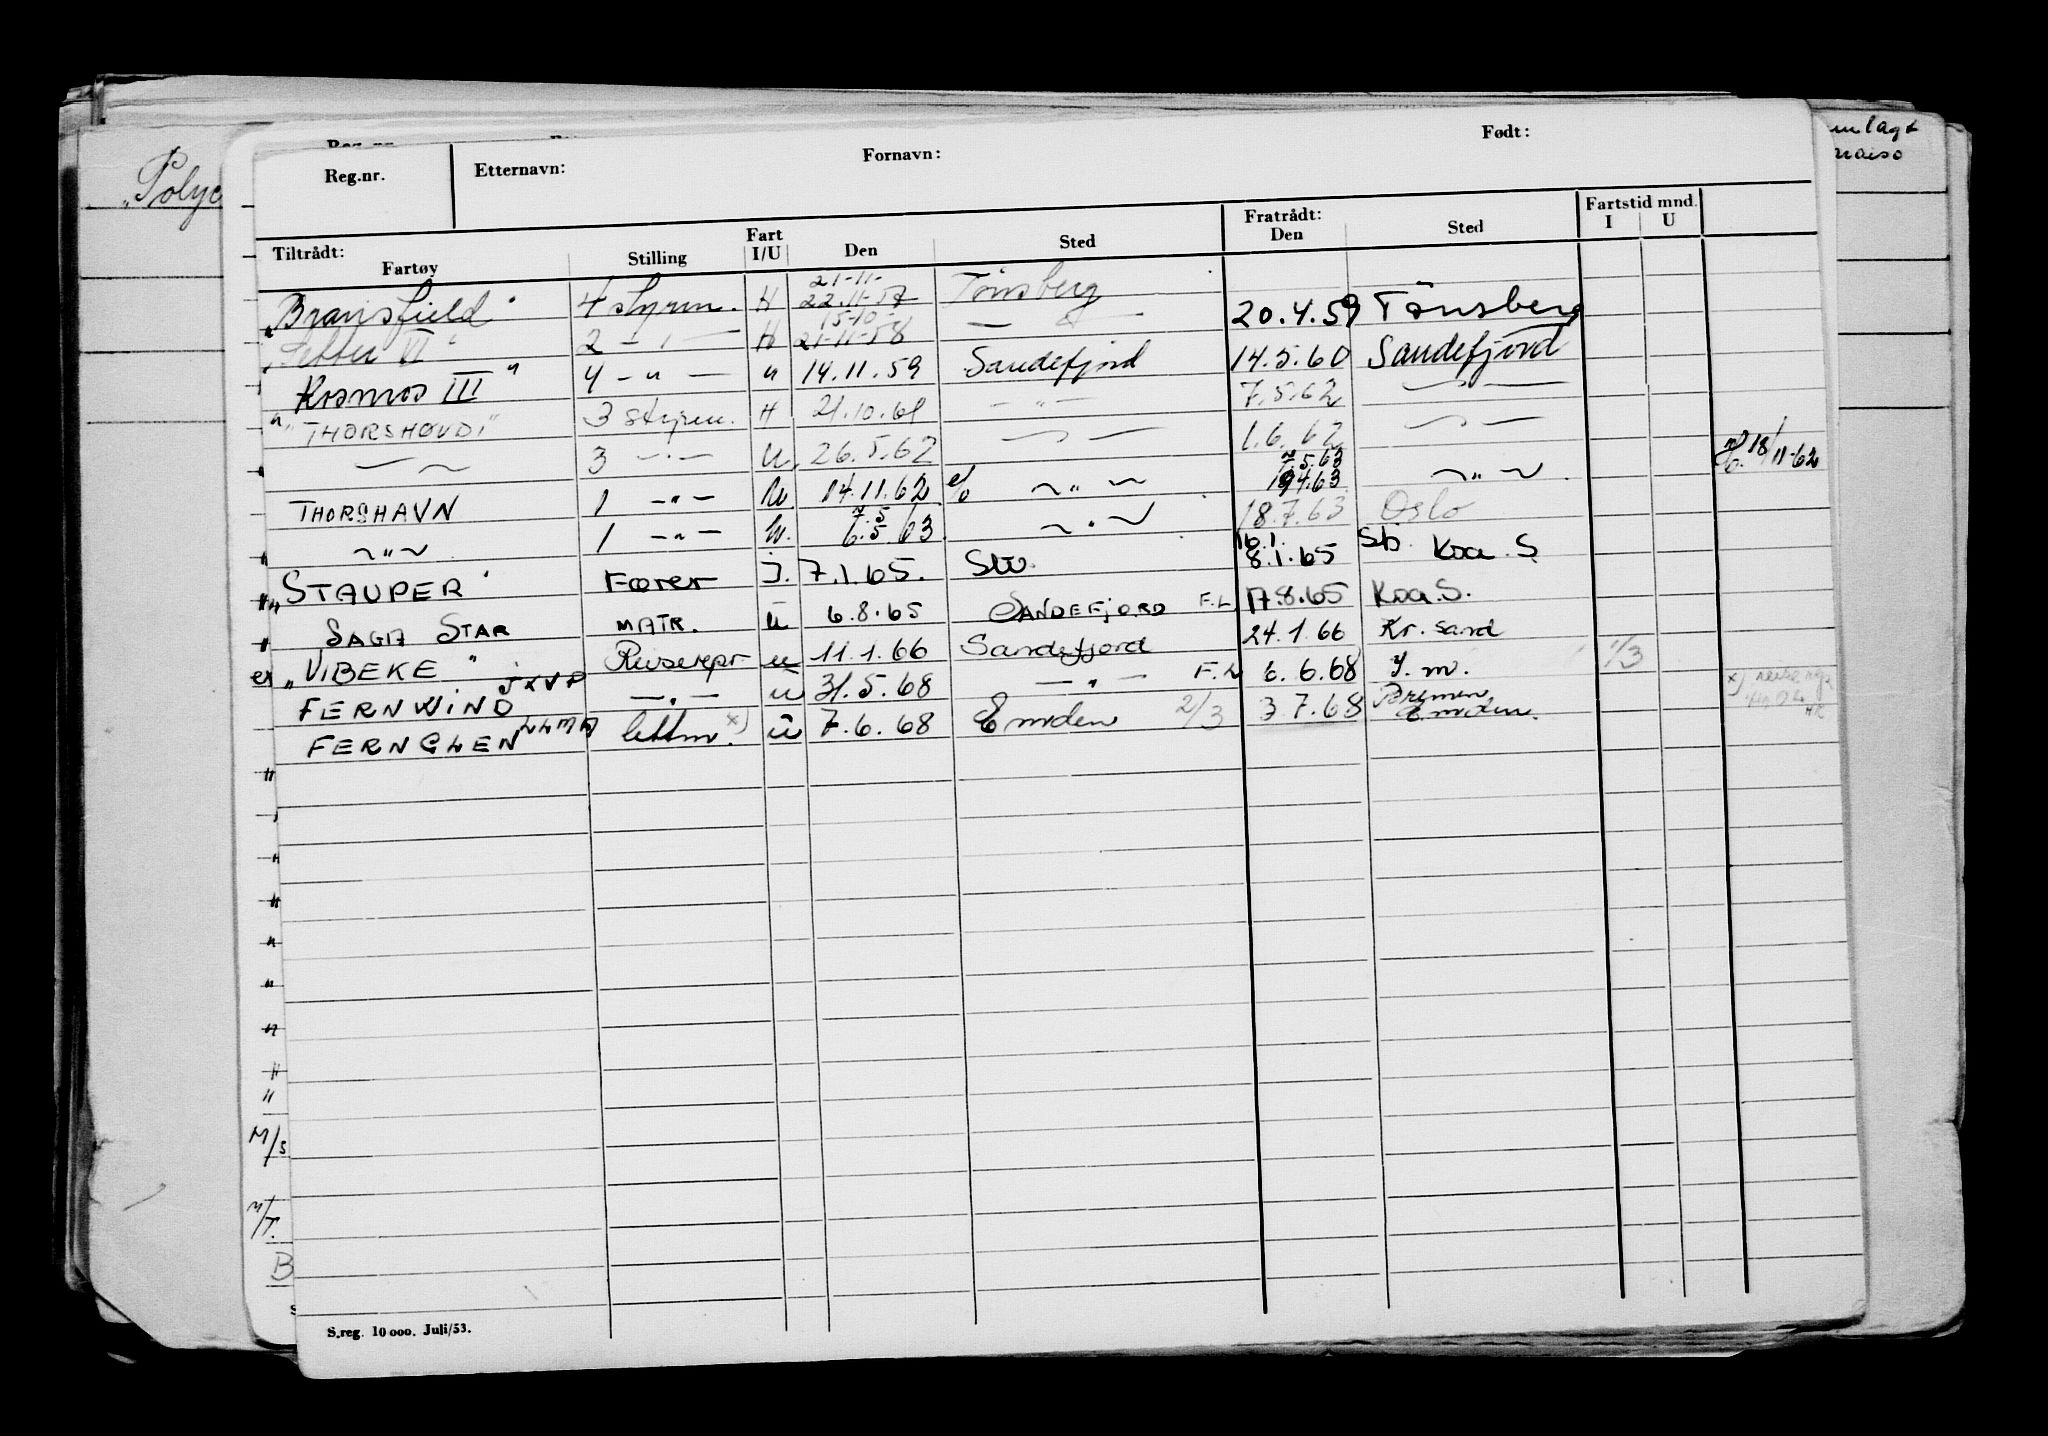 Reg.nr. Etternavn: Fornavn: Født:
Tiltrådt: Fratrådt: Fartstid mnd.
Fartøy Stilling Fart I/U Den Sted Den Sted I U
21-11-
"Bransfield" 4 styrm. H 22.11-57 Tønsberg
15-10-
VI" 2 — " — H 21-11-58 — " — 20.4.59 Tønsberg
"Kosmos III" 4 — " — " 14.11.59 Sandefjord 14.5.60 Sandefjord
"THORSHØVDI" 3 styrm. H 21.10.61 — " — 7.5.62 — " —
— " — 3 — " — U. 26.5.62 — " — 1.6.62 — " —
7.5.63
THORSHAVN 1 — " — U. 14.11.62 — " — 19.4.63 — " — 18/11-62
7.5
~ " ~ 1 — " — U. 6.5.63 ~ " ~ 18.7.63 Oslo
16.1.
"STAUPER" Fører I. 7.1.65. 8.1.65 Kra. S
SAGA STAR MATR. U 6.8.65 SANDEFJORD F.L 17.8.65 Kra. S.
"VIBEKE" Reiserepr U 11.1.66 Sandefjord 24.1.66 Kr. sand
FERNWIND JXVP — " — U 31.5.68 — " — F.L 6.6.68 Y.m. 1/3
FERNGLEN LLMA lettm. x) U 7.6.68 Emden 2/3 3.7.68 Bremen
Emden.
S.reg. 10 000. Juli/53.
"Polyc
M/S
M/T.
B